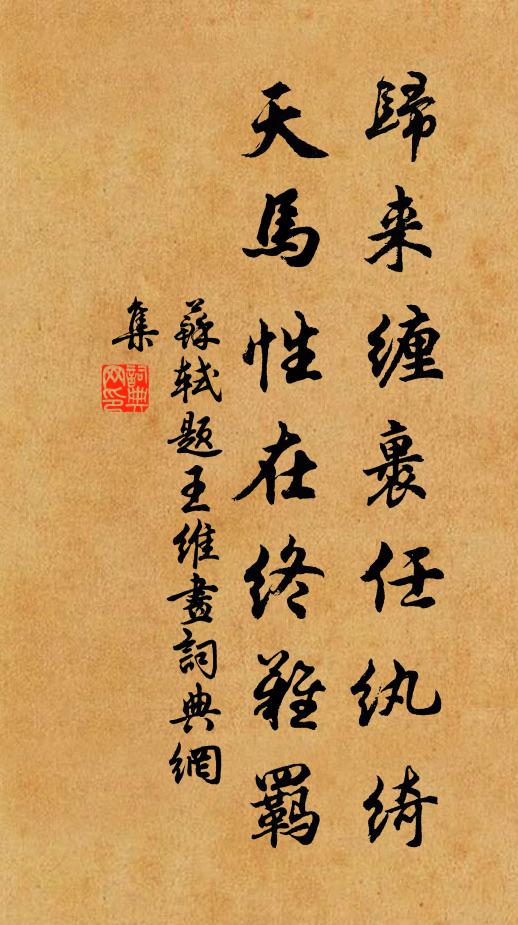 歸来纏裹任紈綺
天馬性在終難羈
蘇軾題王維畫詞典網
集
詞典
网印